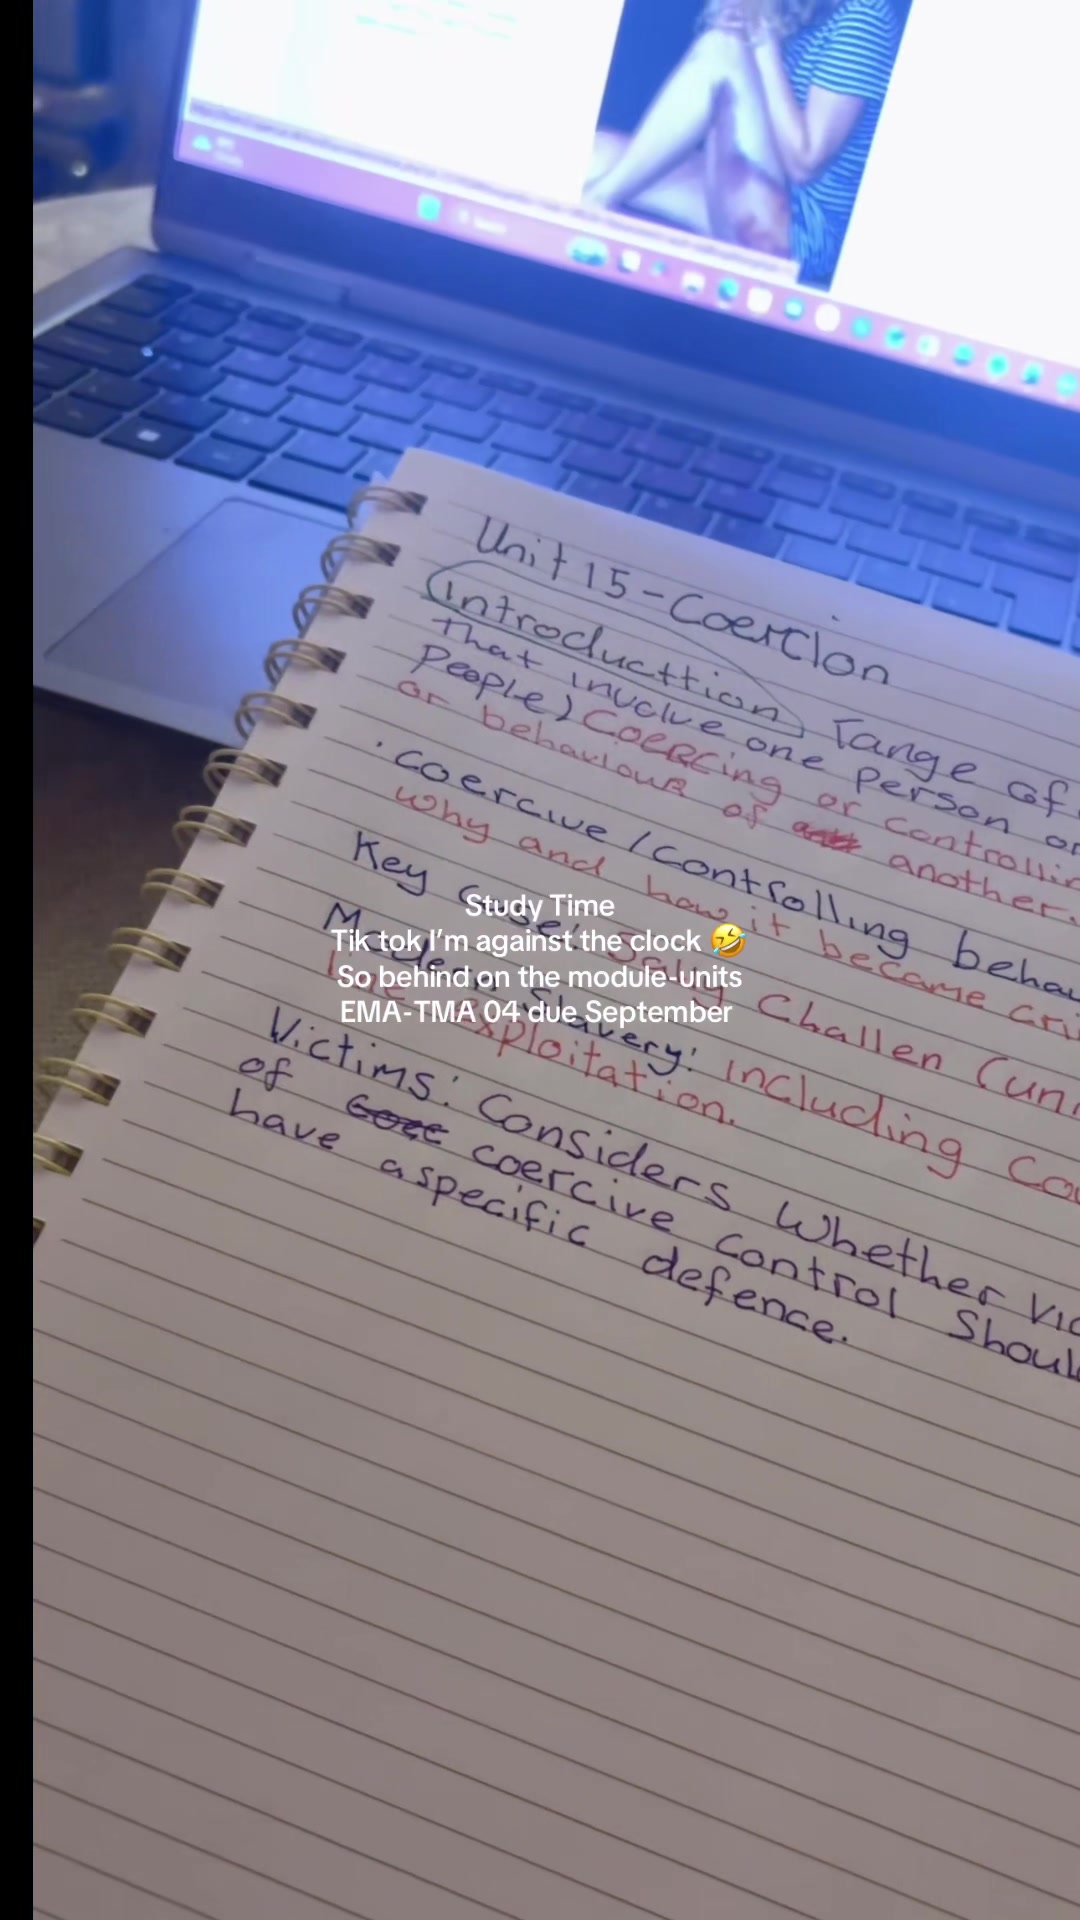 Unit 15 - Coercion
Introducttion range of
that involve one person or
people) Coercing or controllin
or behaviour of another.
· Coercive / controlling behav
why and how it became cri
Key case: Sally Challen (un
Modern Slavery: including Cou
exploitation.
Victims: Considers Whether Vic
of coercive control Should
have a specific defence.
Study Time
Tik tok I’m against the clock 🤣
So behind on the module-units
EMA-TMA 04 due September